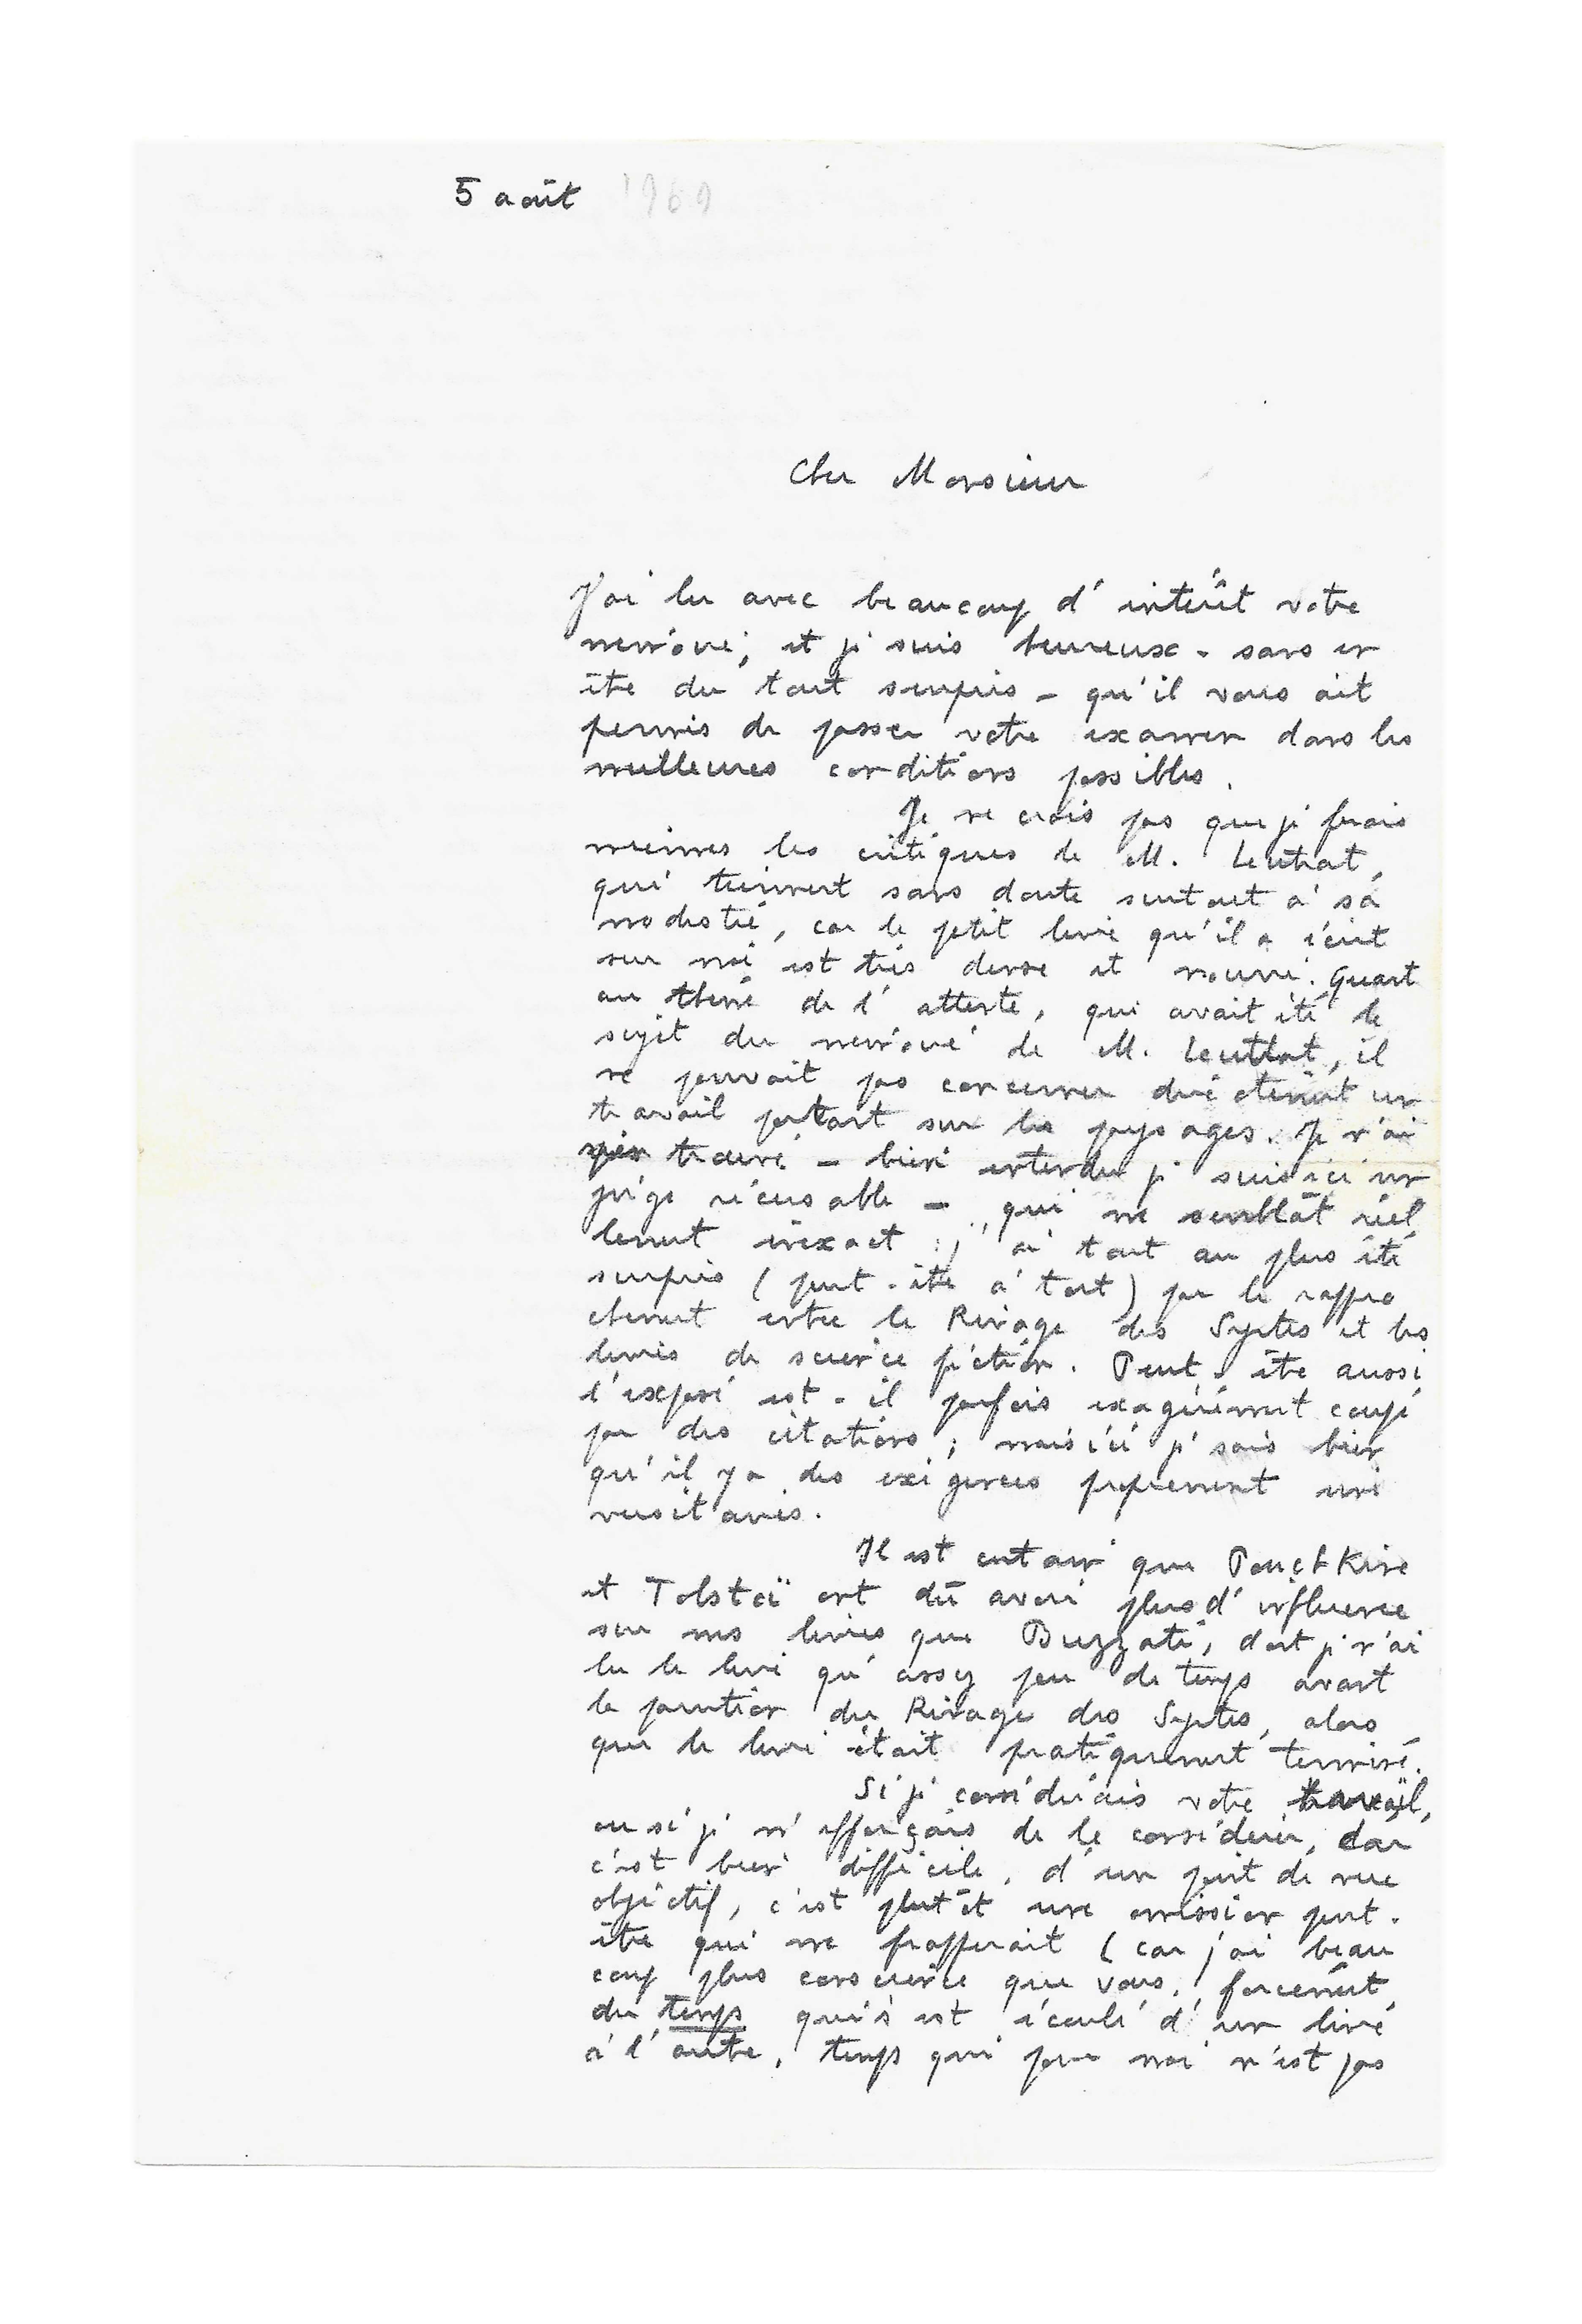 5 août 1969
Cher Monsieur
J'ai lu avec beaucoup d'intérêt votre
mémoire, et je suis heureux - sans en
être du tout surpris - qu'il vous ait
permis de passer votre examen dans les
meilleures conditions possibles.
Je ne crois pas que je ferais
miennes les critiques de M. Leutrat,
qui tiennent sans doute surtout à sa
modestie, car le petit livre qu'il a écrit
sur moi est très dense et nourri. Quant
au thème de l'attente, qui avait été le
sujet du mémoire de M. Leutrat, il
ne pouvait pas concerner directement un
travail portant sur les paysages. Je n'ai
rien trouvé - bien entendu je suis ici un
juge récusable - qui me semblât réel
lement inexact : j'ai tout au plus été
surpris (peut-être à tort) par le rappro
chement entre le Rivage des Syrtes et les
livres de science fiction. Peut-être aussi
l'exposé est-il parfois exagérément coupé
par des citations ; mais ici je sais bien
qu'il y a des exigences proprement uni
versitaires.
Il est certain que Pouchkine
et Tolstoï ont dû avoir plus d'influence
sur mes livres que Buzzati, dont je n'ai
lu le livre qu'assez peu de temps avant
la parution du Rivage des Syrtes, alors
que le livre était pratiquement terminé.
Si je considérais votre travail,
ou si je m'efforçais de le considérer, car
c'est bien difficile, d'un point de vue
objectif, c'est plutôt une omission peut-
être qui me frapperait (car j'ai beau
coup plus conscience que vous, forcément,
du temps qui s'est écoulé d'un livre
à l'autre, temps qui pour moi n'est pas